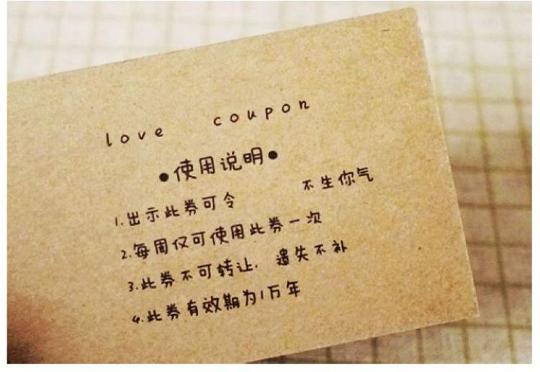 love coupon
●使用说明●
1.出示此券可令 不生你气
2.每周仅可使用此券一次
3.此券不可转让，遗失不补
4.此券有效期为1万年